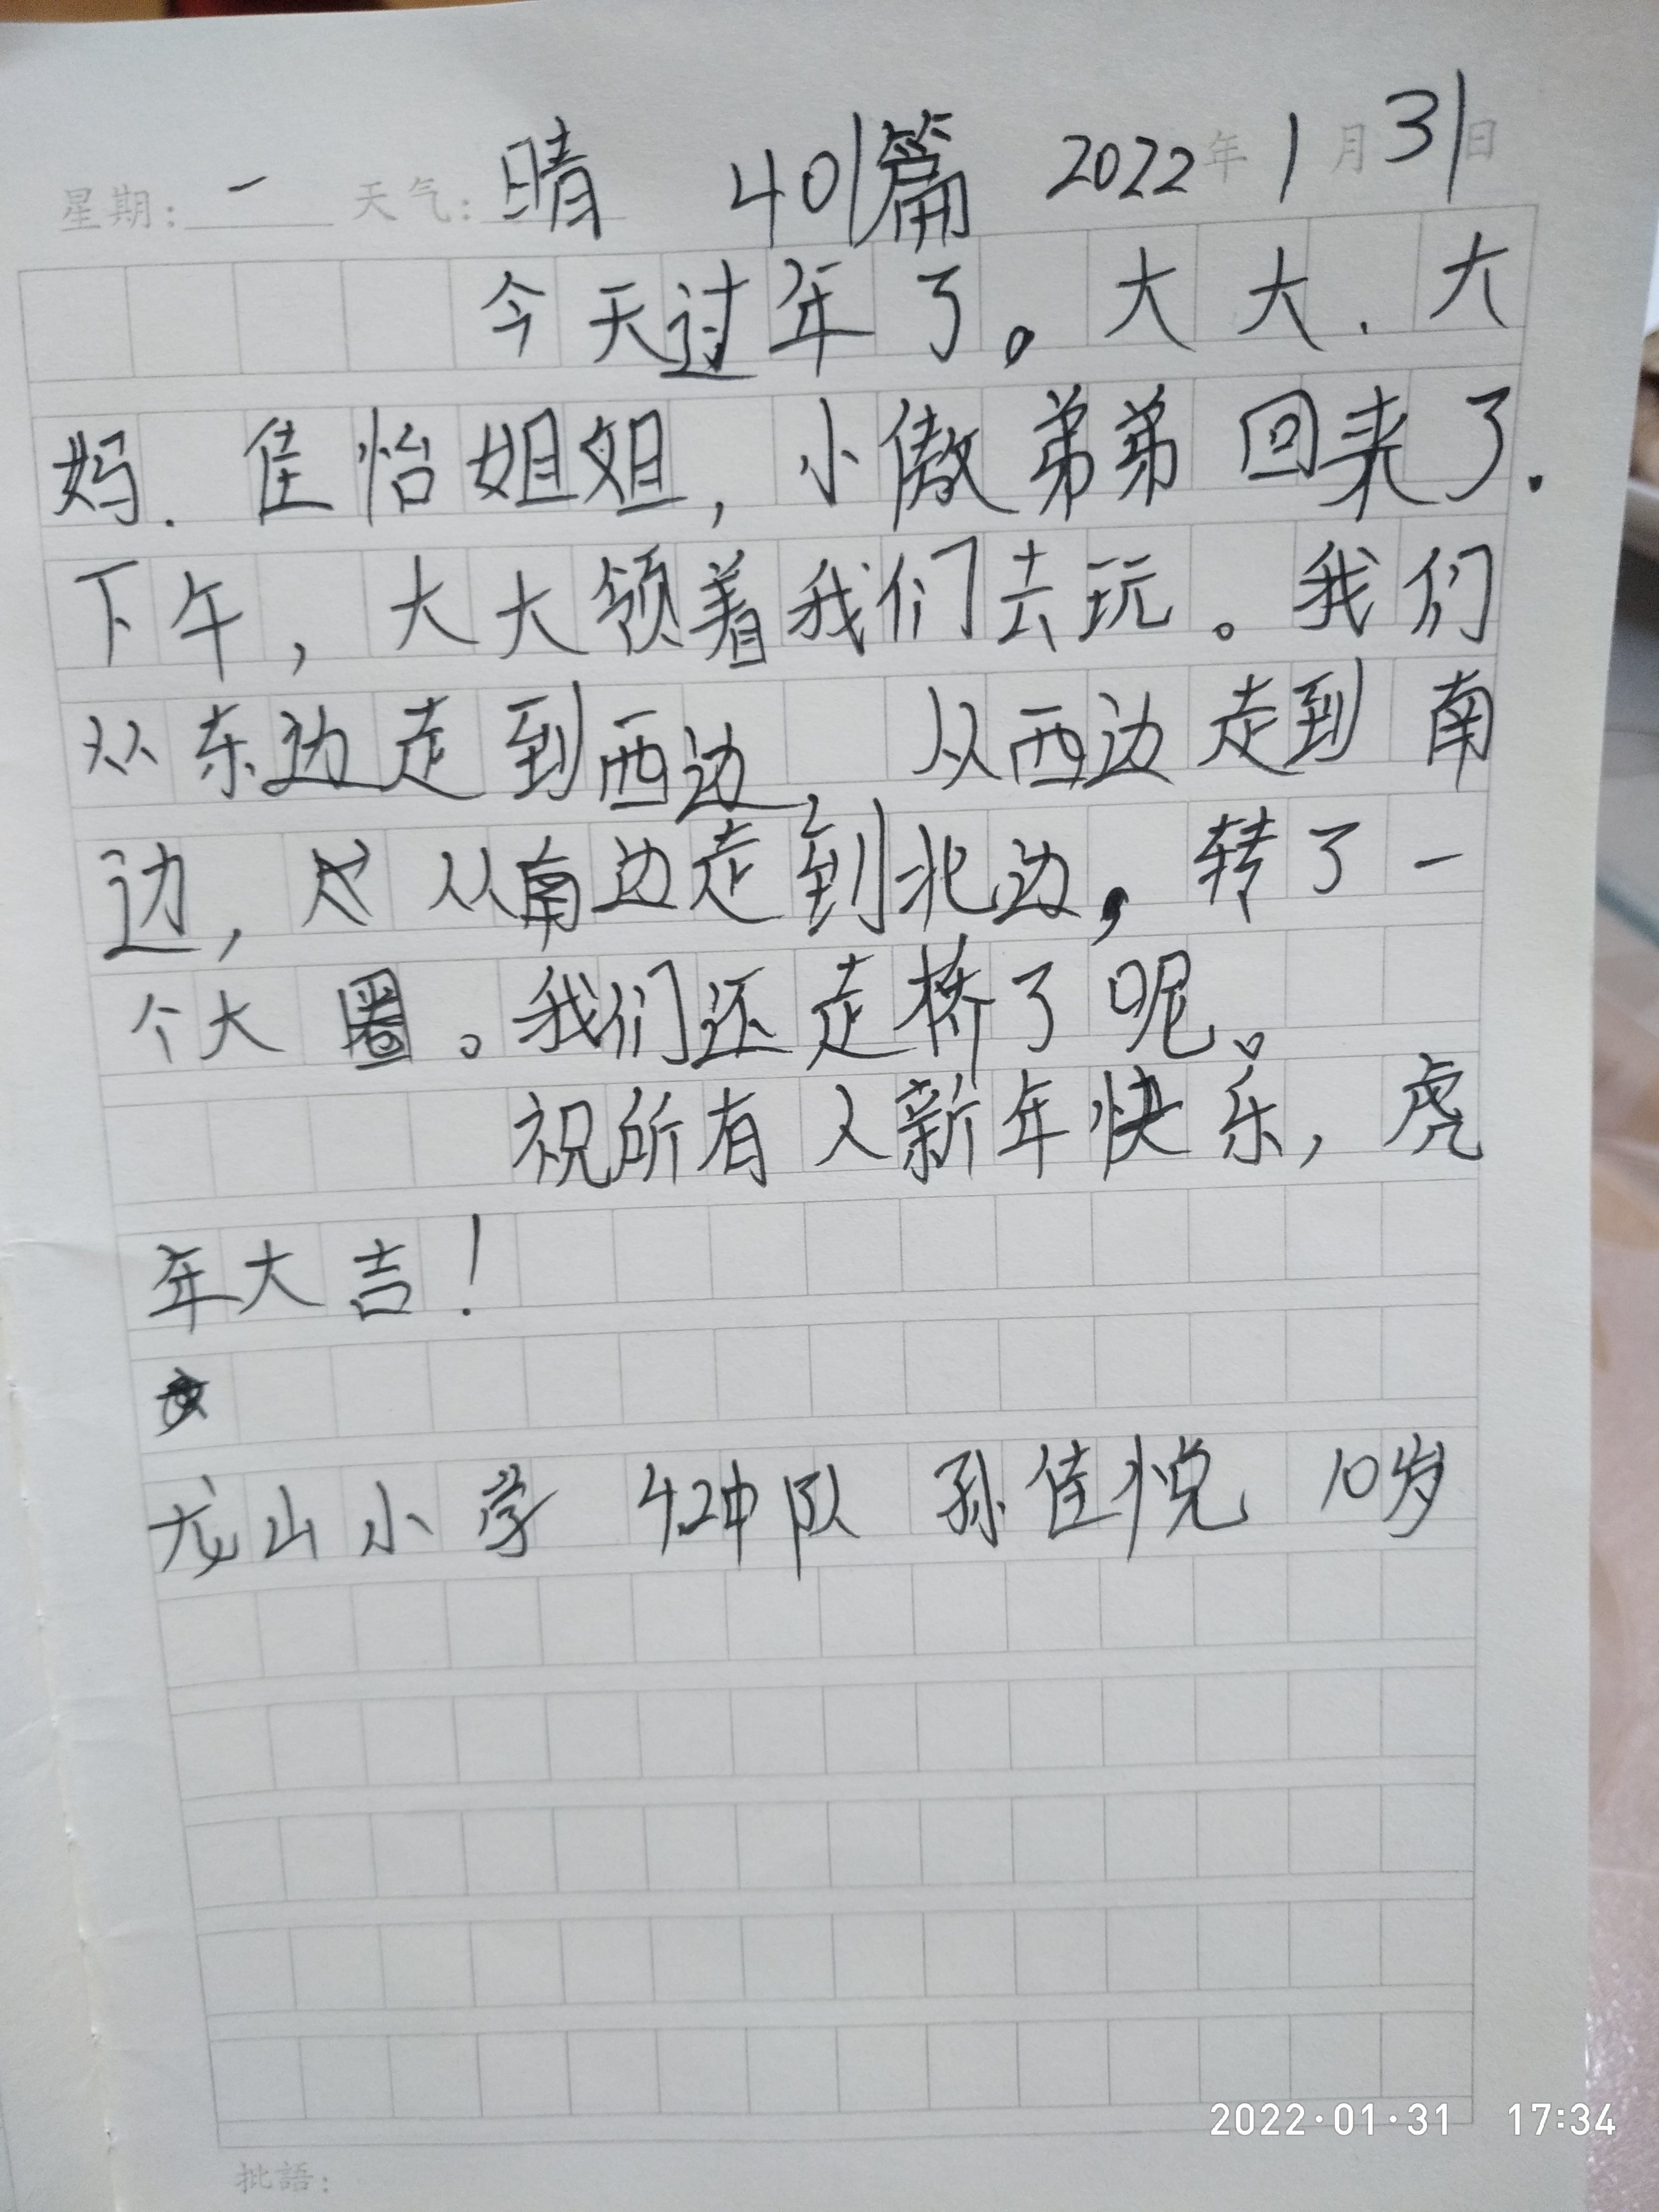 星期：一 天气：晴 401篇 2022年1月31日
今天过年了。大大、大
妈、佳怡姐姐，小傲弟弟回来了.
下午，大大领着我们去玩。我们
从东边走到西边，从西边走到南
边，从南边走到北边，转了一
个大圈。我们还走桥了呢。
祝所有人新年快乐，虎
年大吉！
龙山小学 4.2中队 孙佳悦 10岁
2022·01·31 17:34
批語：